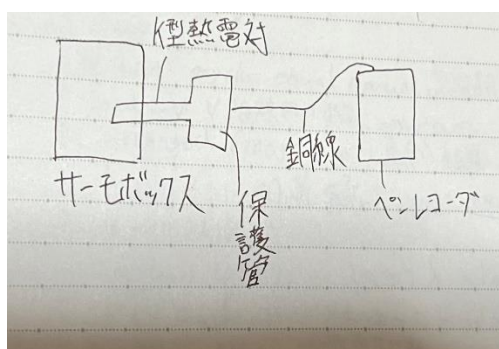 K型熱電対
銅線
サーモボックス
保護管
ペンレコーダ